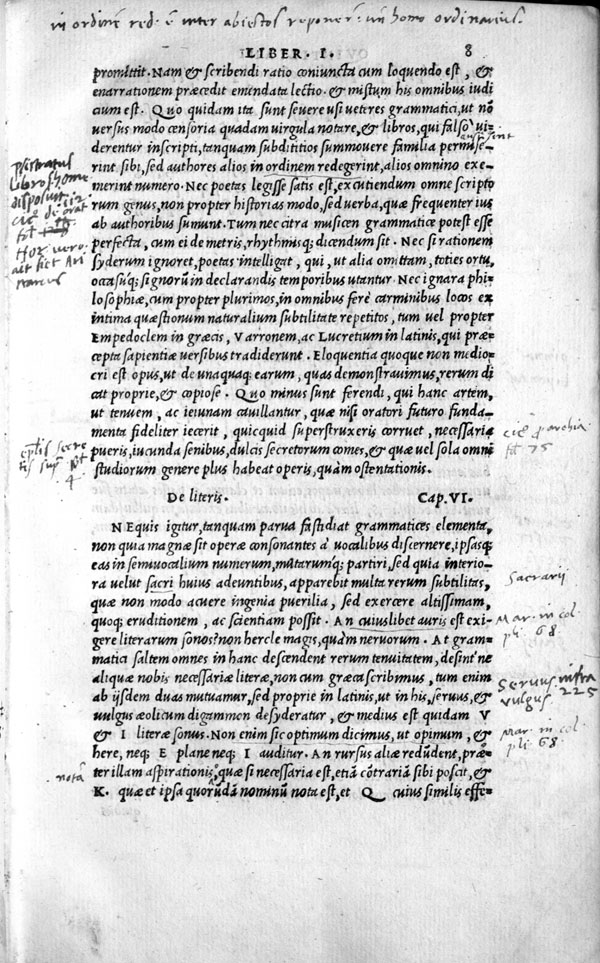 in ordine red. e inter abiectos reponer. un homo ordinarius.
LIBER. I. 8
promittit. Nam & scribendi ratio coniuncta cum loquendo est, &
enarrationem præcedit emendata lectio. & mistum his omnibus iudi
cium est. Quo quidam ita sunt severe usi veteres grammatici, ut nō
versus modo censoria quadam virgula notare, & libros, qui falso vi
derentur inscripti, tanquam subdititios summovere familia permise-
rint sibi, sed authores alios in ordinem redegerint, alios omnino exe-
merint numero. Nec poetas legisse satis est, excutiendum omne scripto
rum genus, non propter historias modo, sed verba, quæ frequenter ius
ab authoribus sumunt. Tum nec citra musicen grammatice potest esse
perfecta, cum ei de metris, rhythmisq; dicendum sit. Nec si rationem
syderum ignoret, poetas intelligat, qui, ut alia omittam, toties ortu,
occasuq; signorū in declarandis temporibus utantur. Nec ignara phi-
losophiæ, cum propter plurimos, in omnibus ferè carminibus locos ex
intima quæstionum naturalium subtilitate repetitos, tum vel propter
Empedoclem in græcis, Varronem, ac Lucretium in latinis, qui præ-
cepta sapientiæ versibus tradiderunt. Eloquentia quoque non medio-
cri est opus, ut de unaquaq; earum, quas demonstravimus, rerum di
cat proprie, & copiose. Quo minus sunt ferendi, qui hanc artem,
ut tenuem, ac ieiunam cavillantur, quæ nisi oratori futuro funda-
menta fideliter iecerit, quicquid superstruxeris corruet, necessaria
pueris, iucunda senibus, dulcis secretorum comes, & quæ vel sola omni
studiorum genere plus habeat operis, quàm ostentationis.
De literis. Cap. VI.
NEquis igitur, tanquam parva fastidiat grammatices elementa,
non quia magnæ sit operæ consonantes à vocalibus discernere, ipsasq;
eas in semivocalium numerum, mutarumq; partiri, sed quia interio-
ra velut sacri huius adeuntibus, apparebit multa rerum subtilitas,
quæ non modo acuere ingenia puerilia, sed exercere altissimam,
quoq; eruditionem, ac scientiam possit. An cuiuslibet auris est exi-
gere literarum sonos? non hercle magis, quàm nervorum. At gram-
matici saltem omnes in hanc descendent rerum tenuitatem, desint ne
aliquæ nobis necessariæ literæ, non cum græca scribimus, tum enim
ab ijsdem duas mutuamur, sed proprie in latinis, ut in his, servus, &
vulgus æolicum digammon desyderatur, & medius est quidam V
& I literæ sonus. Non enim sic optimum dicimus, ut opimum, &
here, neq; E plane neq; I auditur. An rursus aliæ redūdent, præ-
ter illam aspirationis, quæ si necessaria est, etiā cōtrariā sibi poscit, &
K. quæ et ipsa quorūdā nominū nota est, et Q cuius similis effe-
libros home
disposuit
Sacrarii
Mar. in col
pli 68.
Servus infra
vulgus 225
Mar. in col
pli 68
nota